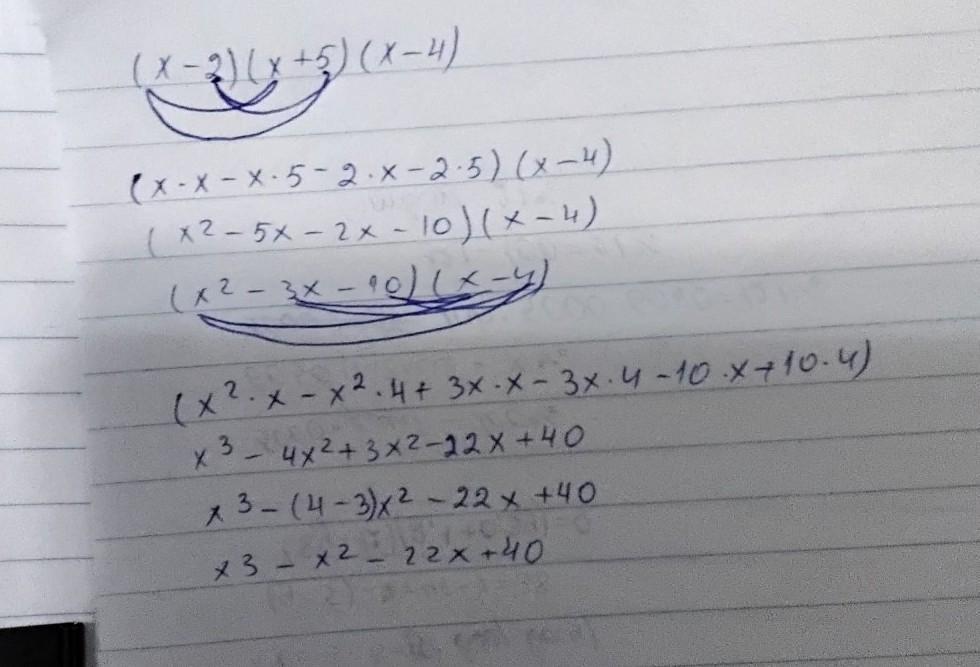 (x-2)(x+5)(x-4)
(x·x-x·5-2·x-2·5)(x-4)
(x²-5x-2x-10)(x-4)
(x²-3x-10)(x-4)
(x²·x-x²·4+3x·x-3x·4-10·x+10·4)
x³-4x²+3x²-22x+40
x³-(4-3)x²-22x+40
x3-x²-22x+40